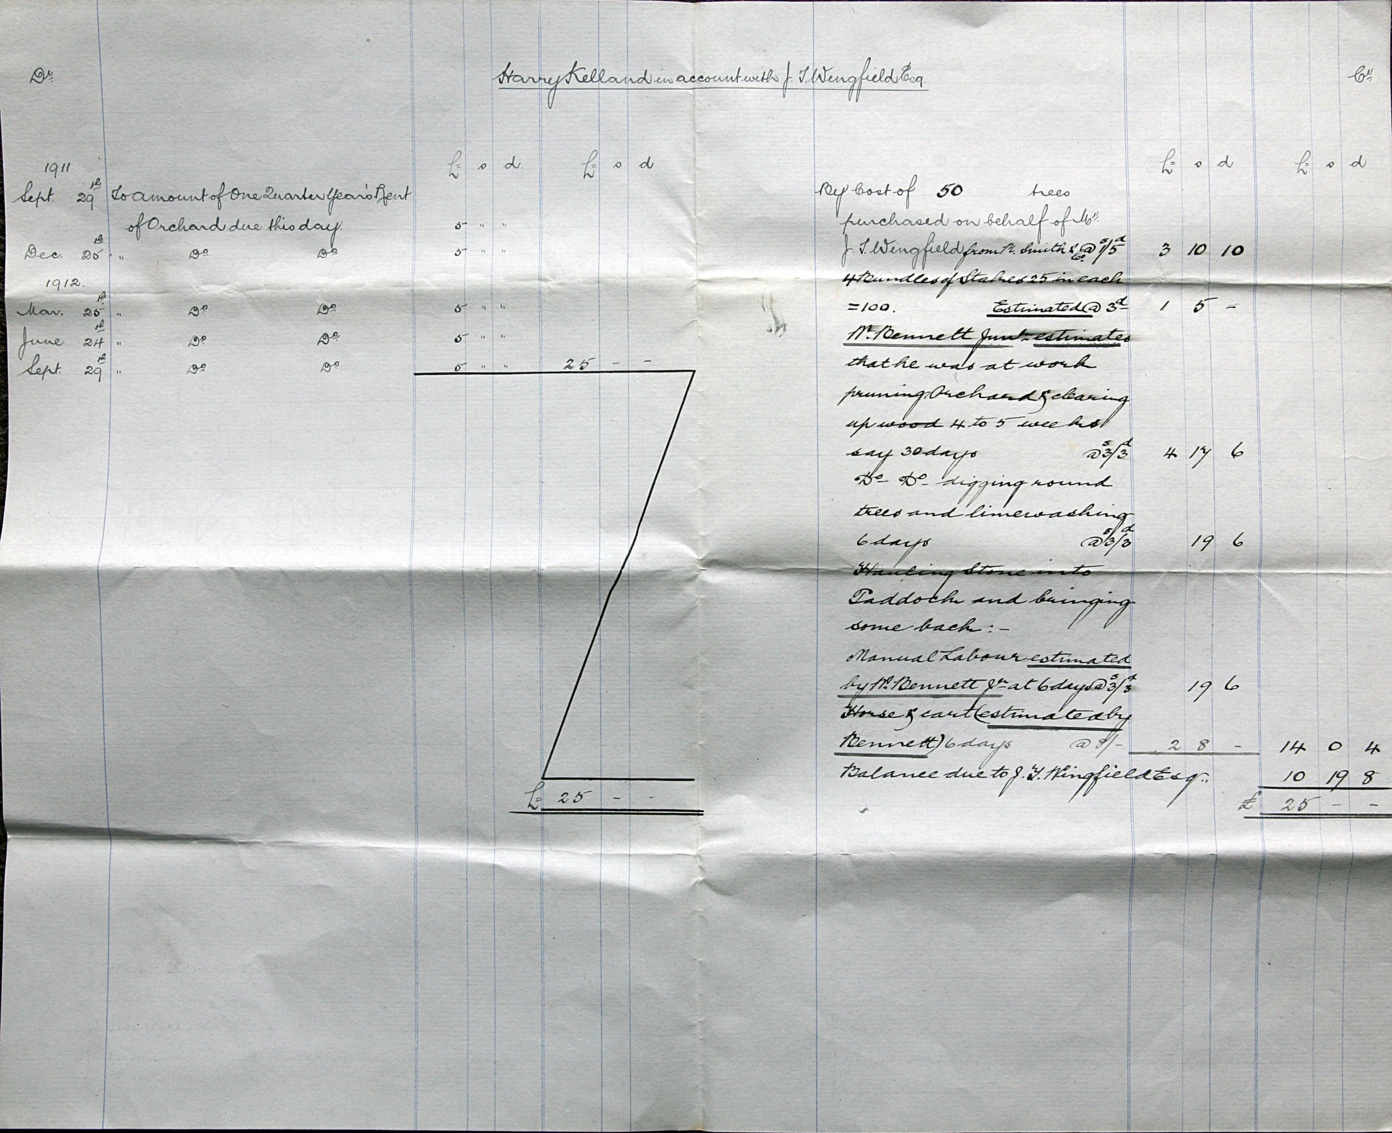 Dr. Harry Kelland in account with J T Wingfield Esq. Cr.
£ s d £ s d
1911
Sept. 29th To amount of One Quarter Year's Rent
of Orchard due this day. 5 " "
Dec. 25th " Do Do 5 " "
1912.
Mar. 25th " Do Do 5 " "
June 24th " Do Do 5 " "
Sept. 29th " Do Do 5 " " 25 - -
£ 25 - -
£ s d £ s d
By Cost of 50 trees
purchased on behalf of Mr.
J T Wingfield from Smith & Co. @ 1s/5d 3 10 10
4 Bundles of Stakes 25 in each
= 100. Estimated @ 3d 1 5 -
W. Bennett Junr. estimates
that he was at work
pruning Orchard & clearing
up wood 4 to 5 weeks
say 30 days @ 3s/3d 4 17 6
Do Do digging round
trees and limewashing
6 days @ 3s/3d 19 6
Hauling Stone into
Paddock and bringing
some back :-
Manual Labour estimated
by W. Bennett Jr. at 6 days @ 3s/3d 19 6
Horse & cart (estimated by
Bennett) 6 days @ 8/- 2 8 - 14 0 4
Balance due to J. T. Wingfield Esq.. 10 19 8
£ 25 - -